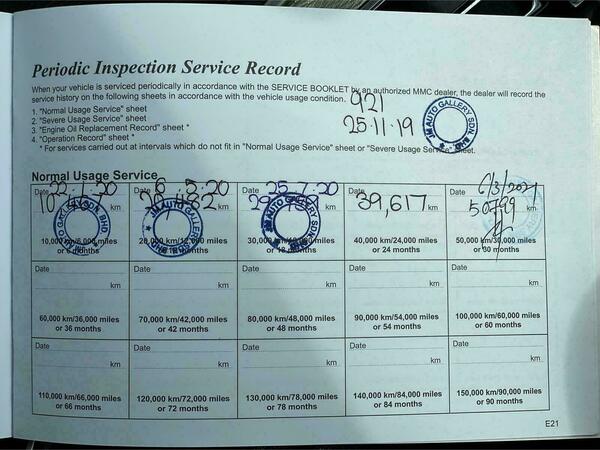 Periodic Inspection Service Record
When your vehicle is serviced periodically in accordance with the SERVICE BOOKLET by an authorized MMC dealer, the dealer will record the
service history on the following sheets in accordance with the vehicle usage condition.
1. "Normal Usage Service" sheet
2. "Severe Usage Service" sheet
3. "Engine Oil Replacement Record" sheet *
4. "Operation Record" sheet *
* For services carried out at intervals which do not fit in "Normal Usage Service" sheet or "Severe Usage Service" sheet.
921
25.11.19
JM AUTO GALLERY SDN BHD
Normal Usage Service
Date Date Date Date
20 6 20 25 20 39,617 6/3/2021
km km km km 50799 km
AUTO GALLERY SDN BHD JM AUTO GALLERY AUTO GALLERY SDN
10,000 km/6,000 miles 20,000 km/12,000 miles 30,000 miles 40,000 km/24,000 miles 50,000 km/30,000 miles
or 6 months months or 18 months or 24 months or 30 months
Date Date Date Date Date
km km km km km
60,000 km/36,000 miles 70,000 km/42,000 miles 80,000 km/48,000 miles 90,000 km/54,000 miles 100,000 km/60,000 miles
or 36 months or 42 months or 48 months or 54 months or 60 months
Date Date Date Date Date
km km km km km
110,000 km/66,000 miles 120,000 km/72,000 miles 130,000 km/78,000 miles 140,000 km/84,000 miles 150,000 km/90,000 miles
or 66 months or 72 months or 78 months or 84 months or 90 months
E21